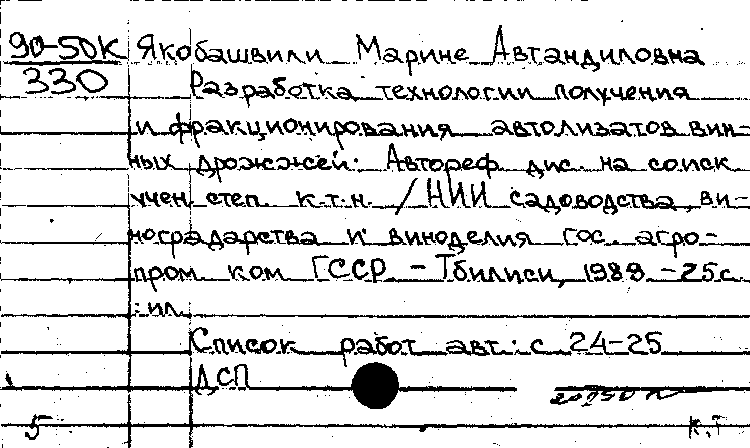 90-50К Якобашвили Марине Автандиловна
330 Разработка технологии получения
и фракционирования автолизатов вин-
ных дрожжей: Автореф. дис. на соиск
учен. степ. к.т.н. / НИИ садоводства, ви-
ноградарства и виноделия Гос. агро-
пром. ком ГССР. - Тбилиси, 1989. - 25с.
: ил.
Список работ авт.: с 24-25
ДСП
5 К.Т